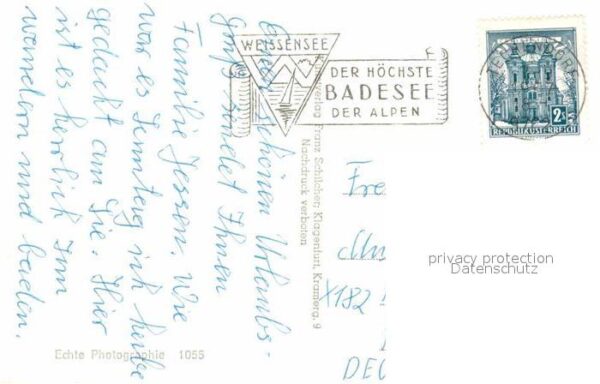 WEISSENSEE
DER HÖCHSTE
BADESEE
DER ALPEN
2S
REPUBLIK ÖSTERREICH
Einen schönen Urlaubs-
gruß sendet Ihnen
Familie Jessen. Wie
war es Sonntag ich habe
gedacht an Sie. Hier
ist es herrlich zum
wandern und baden.
Franz Schilcher, Klagenfurt, Kramerg. 9
Nachdruck verboten
Fre
X182
DEU
privacy protection
Datenschutz
Echte Photographie 1055